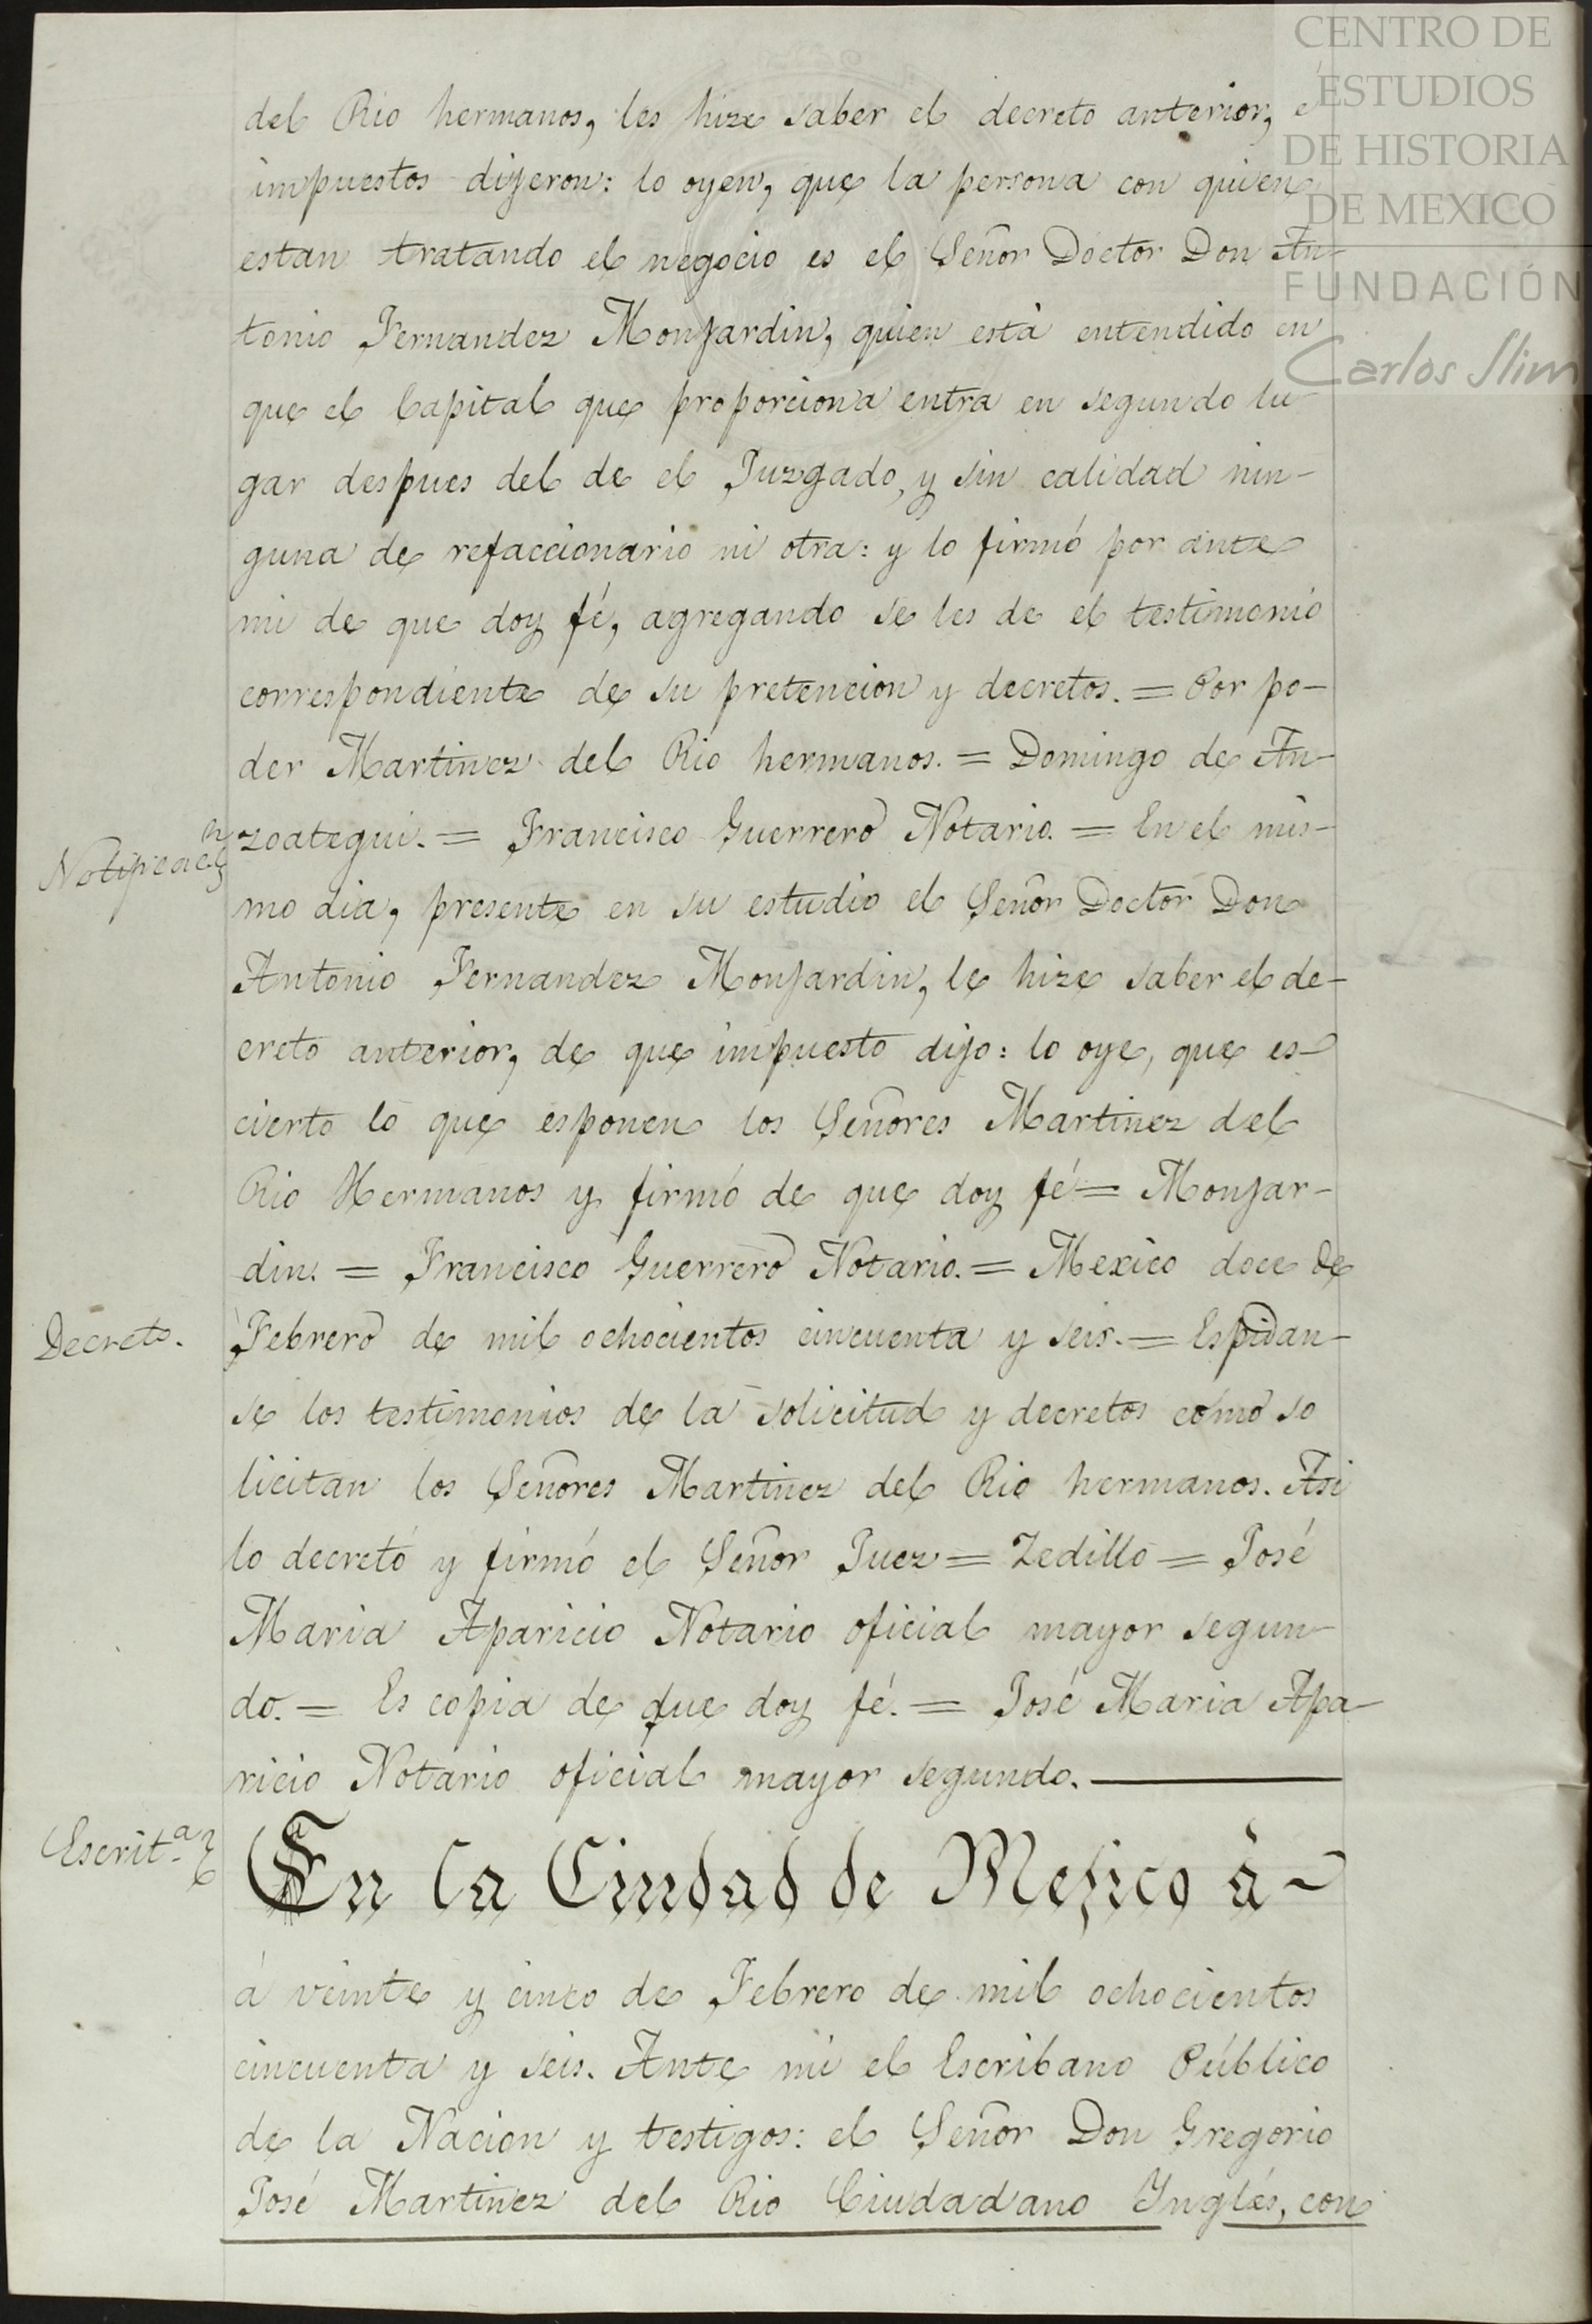 CENTRO DE
ESTUDIOS
DE HISTORIA
DE MEXICO
FUNDACIÓN
Carlos Slim
del Rio hermanos, les hize saber el decreto anterior, é
impuestos dijeron: lo oyen, que la persona con quien
estan tratando el negocio es el Señor Doctor Don An-
tonio Fernandez Monjardin, quien está entendido en
que el Capital que proporciona entra en segundo lu-
gar despues del de el Juzgado, y sin calidad nin-
guna de refaccionario ni otra: y lo firmó por ante
mi de que doy fé, agregando se les de el testimonio
correspondiente de su pretencion y decretos. = Por po-
der Martinez del Rio hermanos. = Domingo de An-
Notificacn
zoategui. = Francisco Guerrero Notario. = En el mis-
mo dia, presente en su estudio el Señor Doctor Don
Antonio Fernandez Monjardin, le hize saber el de-
creto anterior, de que impuesto dijo: lo oye, que es-
cierto lo que esponen los Señores Martinez del
Rio Hermanos y firmó de que doy fé = Monjar-
din. = Francisco Guerrero Notario. = Mexico doce de
Decreto.
Febrero de mil ochocientos cincuenta y seis. = Espidan-
se los testimonios de la solicitud y decretos como so
licitan los Señores Martinez del Rio hermanos. Asi
lo decretó y firmó el Señor Juez = Zedillo = José
Maria Aparicio Notario oficial mayor segun-
do. = Es copia de que doy fé. = José Maria Apa-
ricio Notario oficial mayor segundo.
Escrit.a
En la Ciudad de Mejico á-
á veinte y cinco de Febrero de mil ochocientos
cincuenta y seis. Ante mi el Escribano Público
de la Nacion y testigos: el Señor Don Gregorio
José Martinez del Rio Ciudadano Ynglés, con